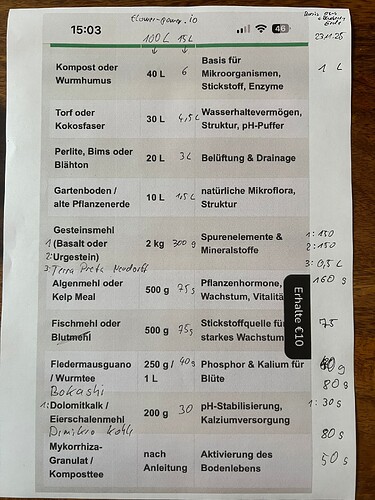 flower-power.io
15:03
46
23.11.25
100 L 15 L
Kompost oder
Wurmhumus
40 L
6
Basis für
Mikroorganismen,
Stickstoff, Enzyme
1 L
Torf oder
Kokosfaser
30 L
4,5 L
Wasserhaltevermögen,
Struktur, pH-Puffer
Perlite, Bims oder
Blähton
20 L
3 L
Belüftung & Drainage
Gartenboden /
alte Pflanzenerde
10 L
1,5 L
natürliche Mikroflora,
Struktur
Gesteinsmehl
1 (Basalt oder
2: Urgestein)
3: Terra Preta
2 kg
300 g
Spurenelemente &
Mineralstoffe
1: 150
2: 150
3: 0,5 L
Algenmehl oder
Kelp Meal
500 g
75 g
Pflanzenhormone,
Wachstum, Vitalitä
160 g
Erhalte €10
Fischmehl oder
Blutmehl
500 g
75 g
Stickstoffquelle fü
starkes Wachstum
75
Fledermausguano
/ Wurmtee
Bokashi
250 g /
1 L
40 g
Phosphor & Kalium für
Blüte
80 g
1: Dolomitkalk /
Eierschalenmehl
200 g
30
pH-Stabilisierung,
Kalziumversorgung
1: 30 g
80 g
Mykorrhiza-
Granulat /
Komposttee
nach
Anleitung
Aktivierung des
Bodenlebens
50 g